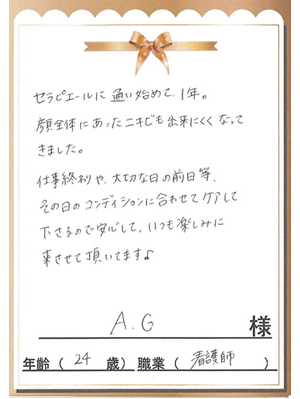 セラピエールに通い始めて、1年。
顔全体にあったニキビも出来にくくなって
きました。
仕事終わりや、大切な日の前日等、
その日のコンディションに合わせてケアして
下さるので安心して、いつも楽しみに
来させて頂いてます♪
A.G 様
年齢（ 24 歳）職業（ 看護師 ）